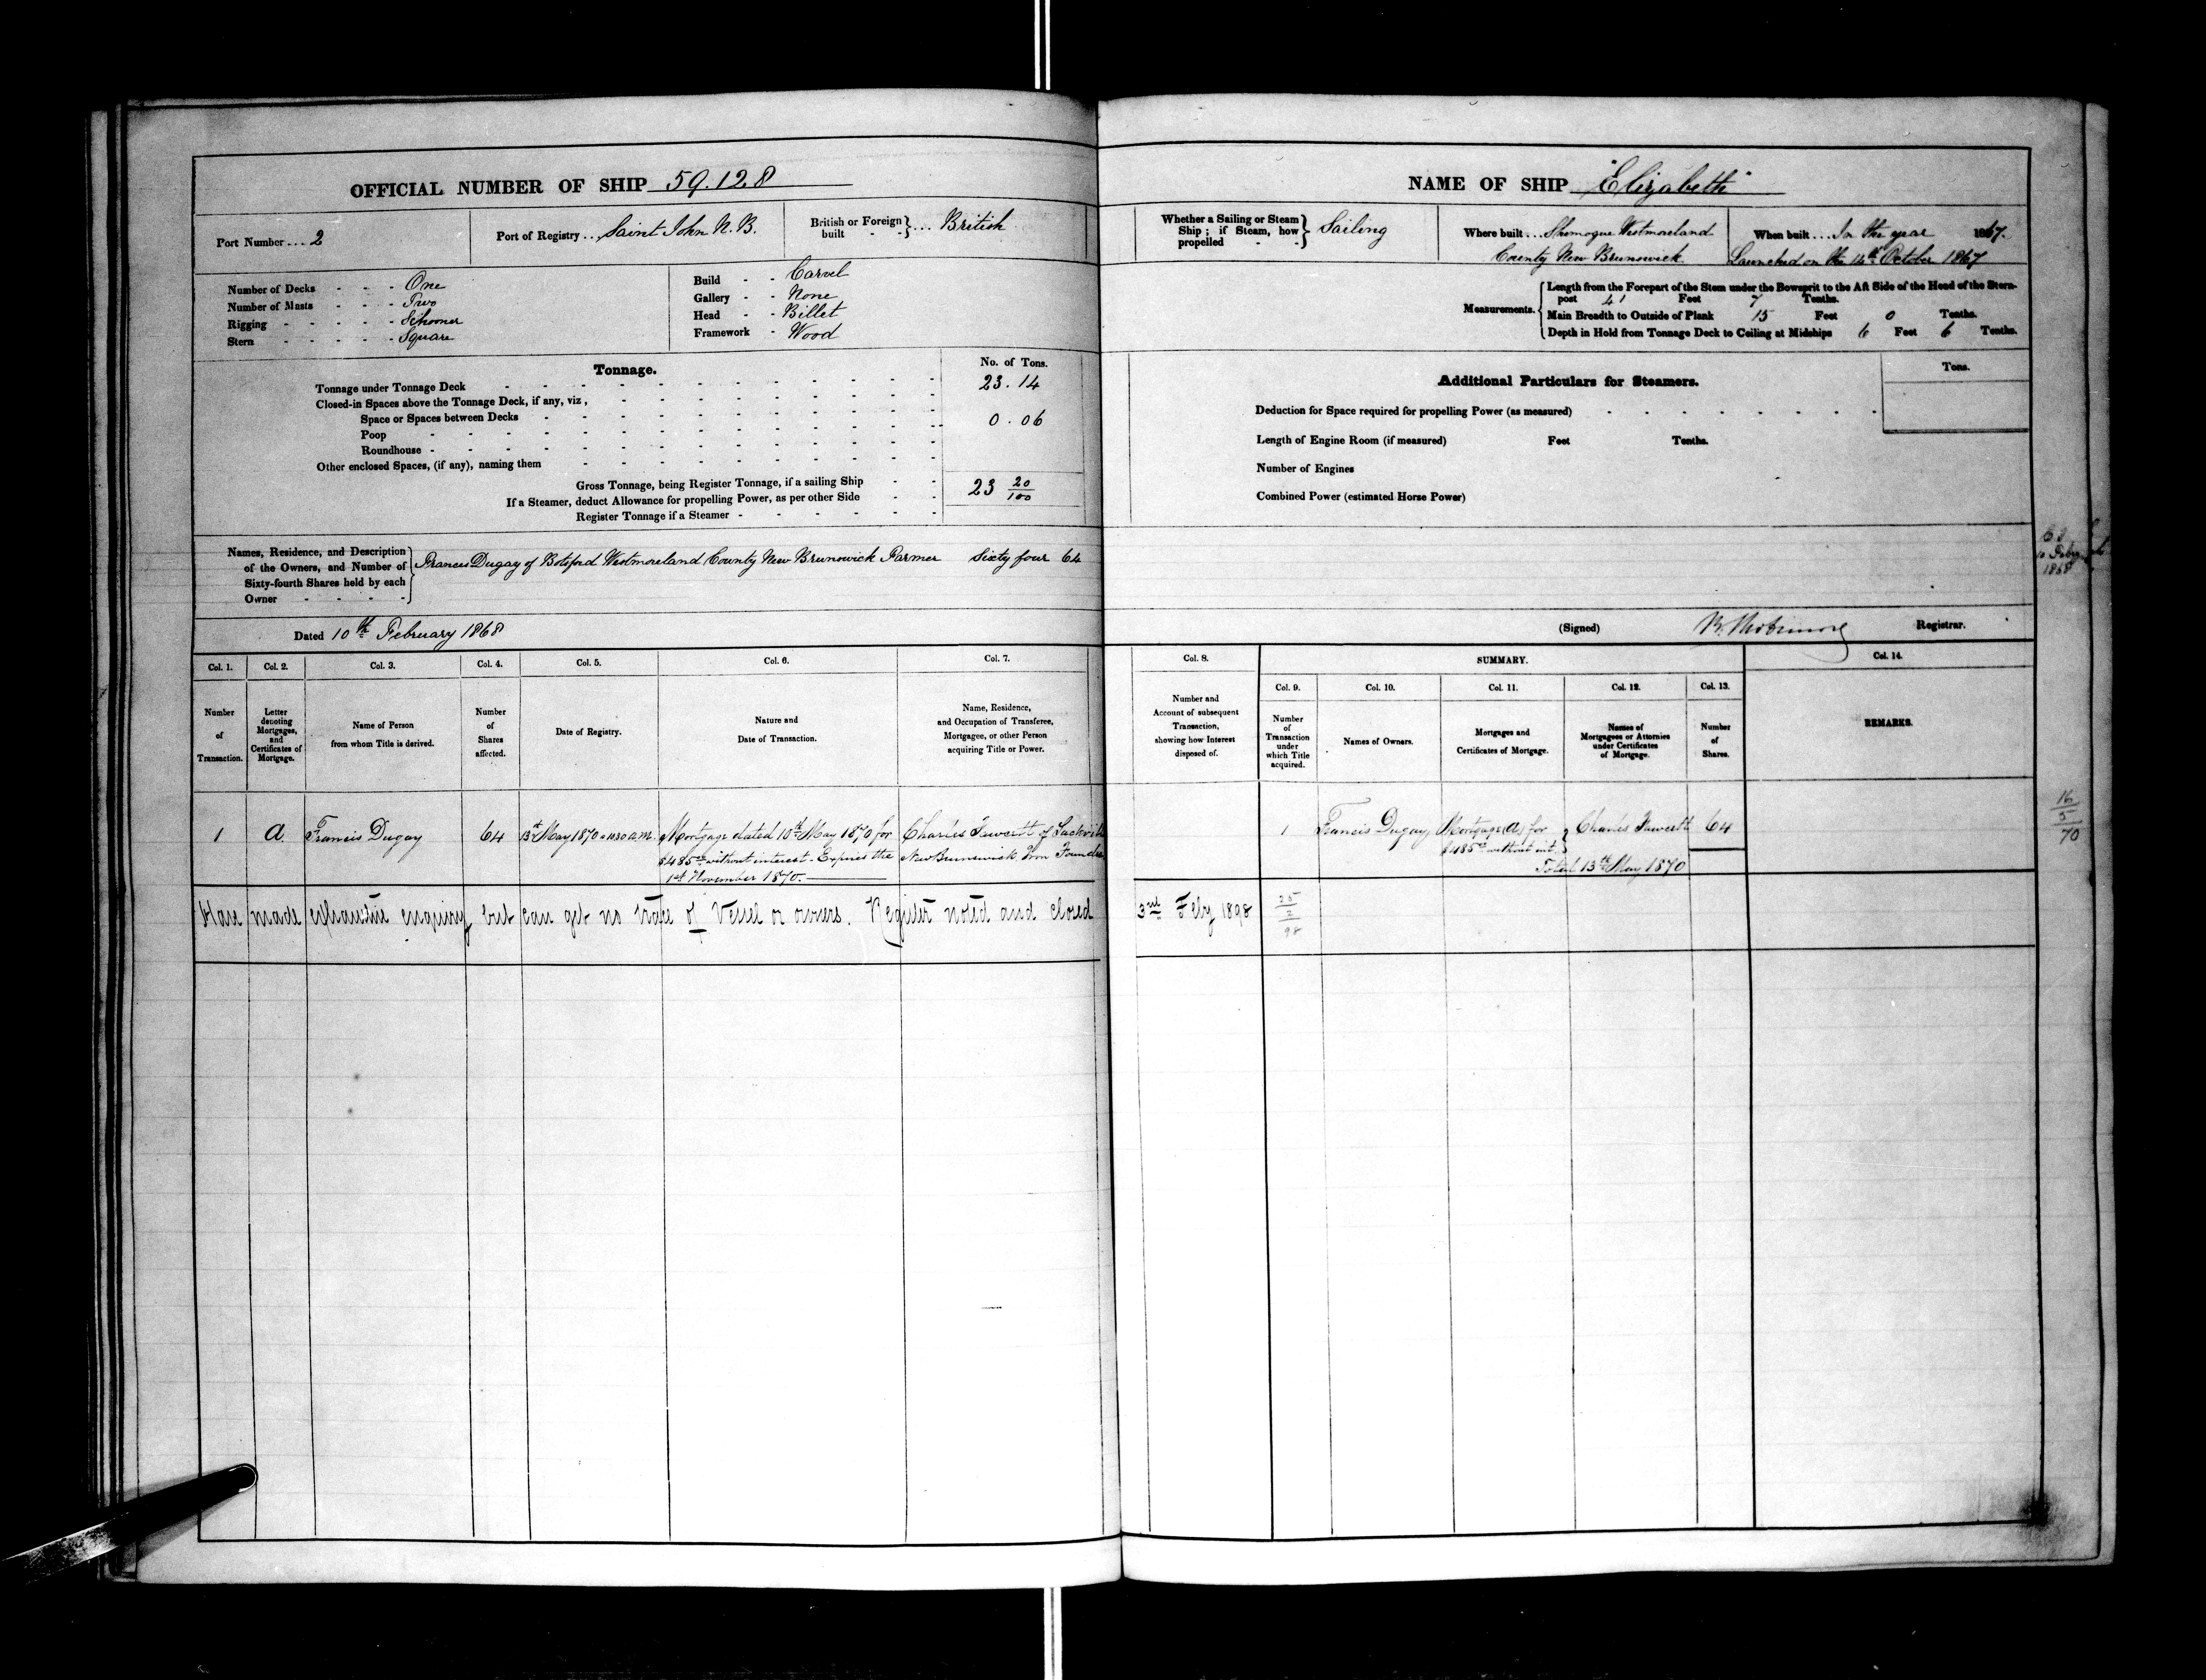 OFFICIAL NUMBER OF SHIP 59.128
Port Number ... 2
Port of Registry ... Saint John N.B.
British or Foreign built - - } ... British
Number of Decks - - - One
Number of Masts - - - Two
Rigging - - - - - Schooner
Stern - - - - - Square
Build - - Carvel
Gallery - - None
Head - - Billet
Framework - Wood
Tonnage.
No. of Tons.
Tonnage under Tonnage Deck 23.14
Closed-in Spaces above the Tonnage Deck, if any, viz,
Space or Spaces between Decks 0.06
Poop
Roundhouse
Other enclosed Spaces, (if any), naming them
Gross Tonnage, being Register Tonnage, if a sailing Ship 23 20/100
If a Steamer, deduct Allowance for propelling Power, as per other Side
Register Tonnage if a Steamer
Names, Residence, and Description
of the Owners, and Number of
Sixty-fourth Shares held by each
Owner - - - -
Francis Dugay of Botsford Westmoreland County New Brunswick Farmer Sixty four 64
Dated 10th February 1868
Col. 1. Col. 2. Col. 3. Col. 4. Col. 5. Col. 6. Col. 7.
Number of Transaction.
Letter denoting Mortgages, and Certificates of Mortgage.
Name of Person from whom Title is derived.
Number of Shares affected.
Date of Registry.
Nature and Date of Transaction.
Name, Residence, and Occupation of Transferee, Mortgagee, or other Person acquiring Title or Power.
1 A. Francis Dugay 64 13th May 1870 at 10.30 a.m. Mortgage dated 10th May 1870 for Charles Fawcett of Sackville
$485 00 without interest - Expires the New Brunswick Iron Founder
1st November 1870.
Have made exhaustive enquiry but can get no trace of Vessel or owners. Register noted and closed
NAME OF SHIP "Elizabeth"
Whether a Sailing or Steam
Ship; if Steam, how
propelled - -
Sailing
Where built ... Shemogue Westmoreland
County New Brunswick
When built ... In the year 1867.
Launched on the 14th October 1867
Measurements.
Length from the Forepart of the Stem under the Bowsprit to the Aft Side of the Head of the Stern-
post 41 Feet 7 Tenths.
Main Breadth to Outside of Plank 15 Feet 0 Tenths.
Depth in Hold from Tonnage Deck to Ceiling at Midships 6 Feet 6 Tenths.
Additional Particulars for Steamers.
Tons.
Deduction for Space required for propelling Power (as measured)
Length of Engine Room (if measured) Feet Tenths.
Number of Engines
Combined Power (estimated Horse Power)
1868
(Signed) Registrar.
Col. 8. SUMMARY. Col. 14.
Col. 9. Col. 10. Col. 11. Col. 12. Col. 13.
Number and Account of subsequent Transaction, showing how Interest disposed of.
Number of Transaction under which Title acquired.
Names of Owners.
Mortgages and Certificates of Mortgage.
Names of Mortgagees or Attornies under Certificates of Mortgage.
Number of Shares.
REMARKS.
1 Francis Dugay Mortgage (A) for Charles Fawcett 64
$485 00 without int.
Total 13th May 1870
16/5/70
3rd Feby 1898
25/2/98